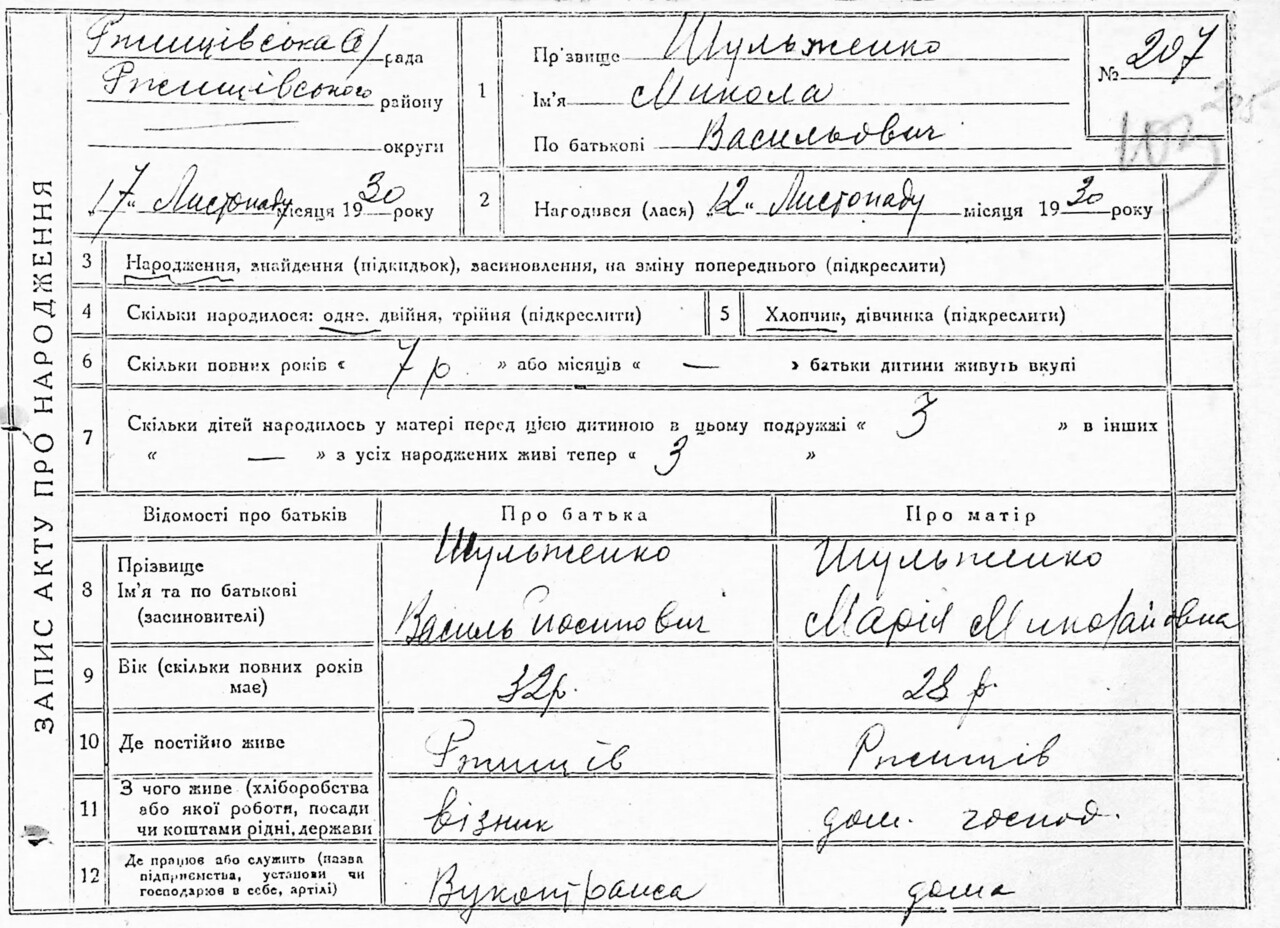 ЗАПИС АКТУ ПРО НАРОДЖЕННЯ
Ржищівська с/рада
Ржищівського району
округи
"17" Листопаду місяця 1930 року
1
Пр'звище Шульженко
Ім'я Микола
По батькові Васильович
№ 207
2
Народився (лася) "12" Листопаду місяця 1930 року
3 Народження, знайдення (підкидьок), засиновлення, на зміну попереднього (підкреслити)
4 Скільки народилося: одне. двійня, трійня (підкреслити)
5 Хлопчик, дівчинка (підкреслити)
6 Скільки повних років « 7 р » або місяців « — » батьки дитини живуть вкупі
7 Скільки дітей народилось у матері перед цією дитиною в цьому подружжі « 3 » в інших
« — » з усіх народжених живі тепер « 3 »
Відомості про батьків Про батька Про матір
8 Прізвище Шульженко Шульженко
Ім'я та по батькові
(засновителі) Василь Йосипович Марія
9 Вік (скільки повних років
має) 32 р. 28 р.
10 Де постійно живе Ржищів Ржищів
11 З чого живе (хліборобства
або якої роботи, посади
чи коштами рідні, держави візник дом. господ.
12 Де працює або служить (назва
підприємства, установи чи
господарює в себе, артілі) Вукотранса дома